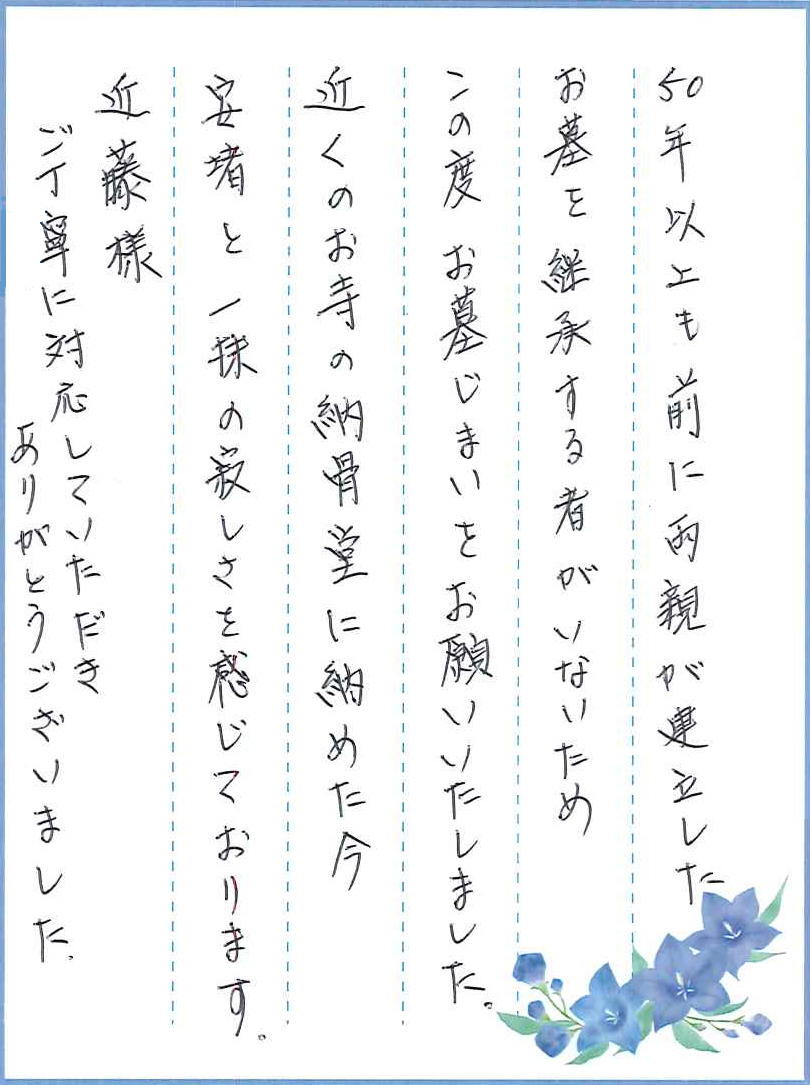 50年以上も前に両親が建立した
お墓を継承する者がいないため
この度お墓じまいをお願いいたしました。
近くのお寺の納骨堂に納めた今
安堵と一抹の寂しさを感じております。
近藤様
ご丁寧に対応していただき
ありがとうございました。